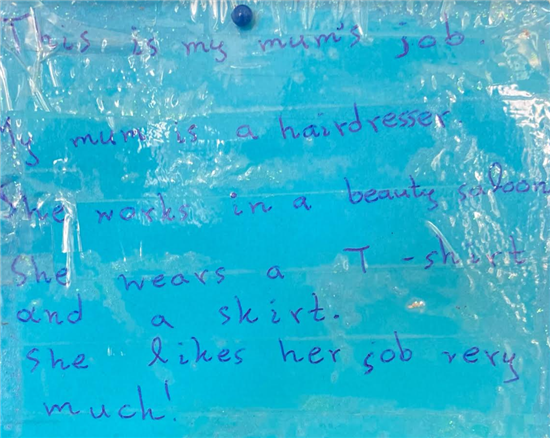 This is my mum's job.
My mum is a hairdresser
She works in a beauty saloon
She wears a T-shirt
and a skirt.
she likes her job very
much!